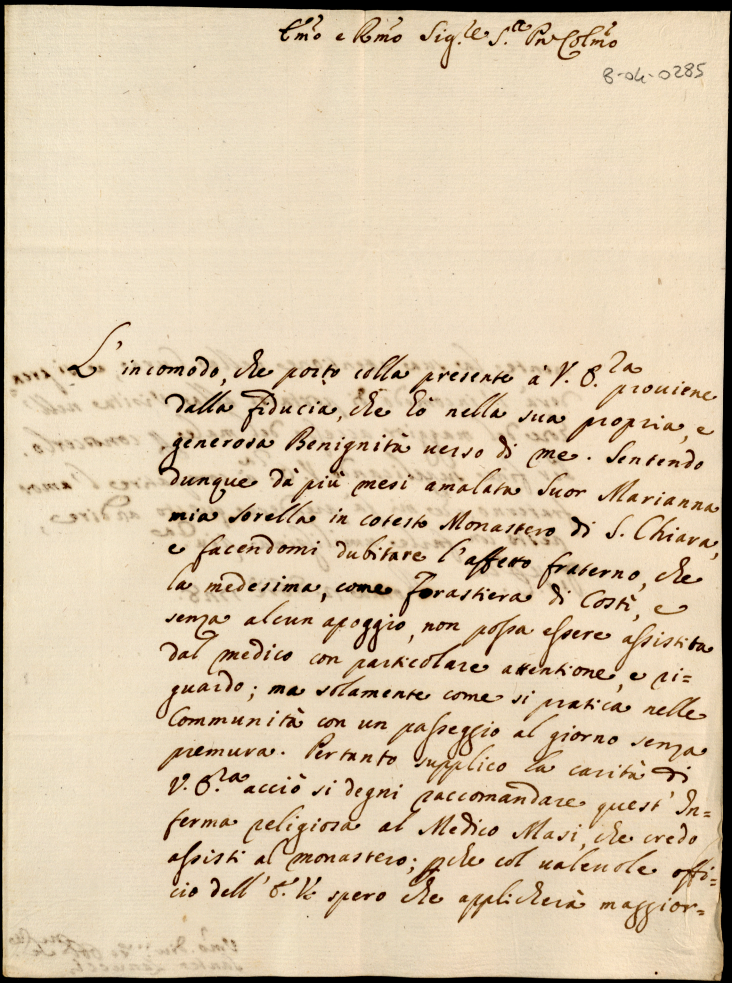 Emo e Rmo Sig.re S.re Pne Colmo
8-04-0285
L'incomodo, che porto colla presente à V. E.za prouiene
dalla fiducia, che hò nella sua propria, e
generosa Benignità uerso di me. Sentendo
dunque dà più mesi amalata Suor Marianna
mia sorella in cotesto Monastero di S. Chiara,
e facendomi dubitare l'affetto fraterno, che
la medesima, come forastiera di Costì, e
senza alcun apoggio, non possa essere assistita
dal medico con particolare attentione, e ri=
guardo; ma solamente come si pratica nelle
Communità con un passeggio al giorno senza
premura. Pertanto supplico la carità di
V. E.za acciò si degni raccomandare quest' In=
ferma religiosa al Medico Masi, che credo
assisti al monastero; pche col ualeuole offi=
cio dell' E. V. spero che applicherà maggior=